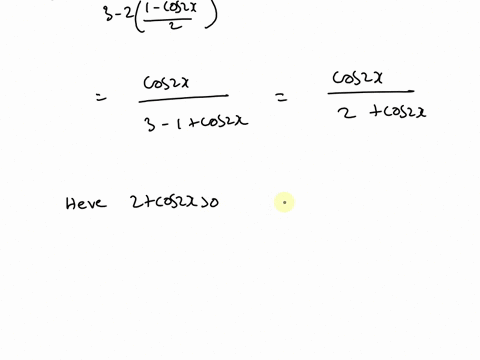 3-2(1-cos2x/2)
= cos2x/3-1+cos2x = cos2x/2+cos2x
Here 2+cos2x>0